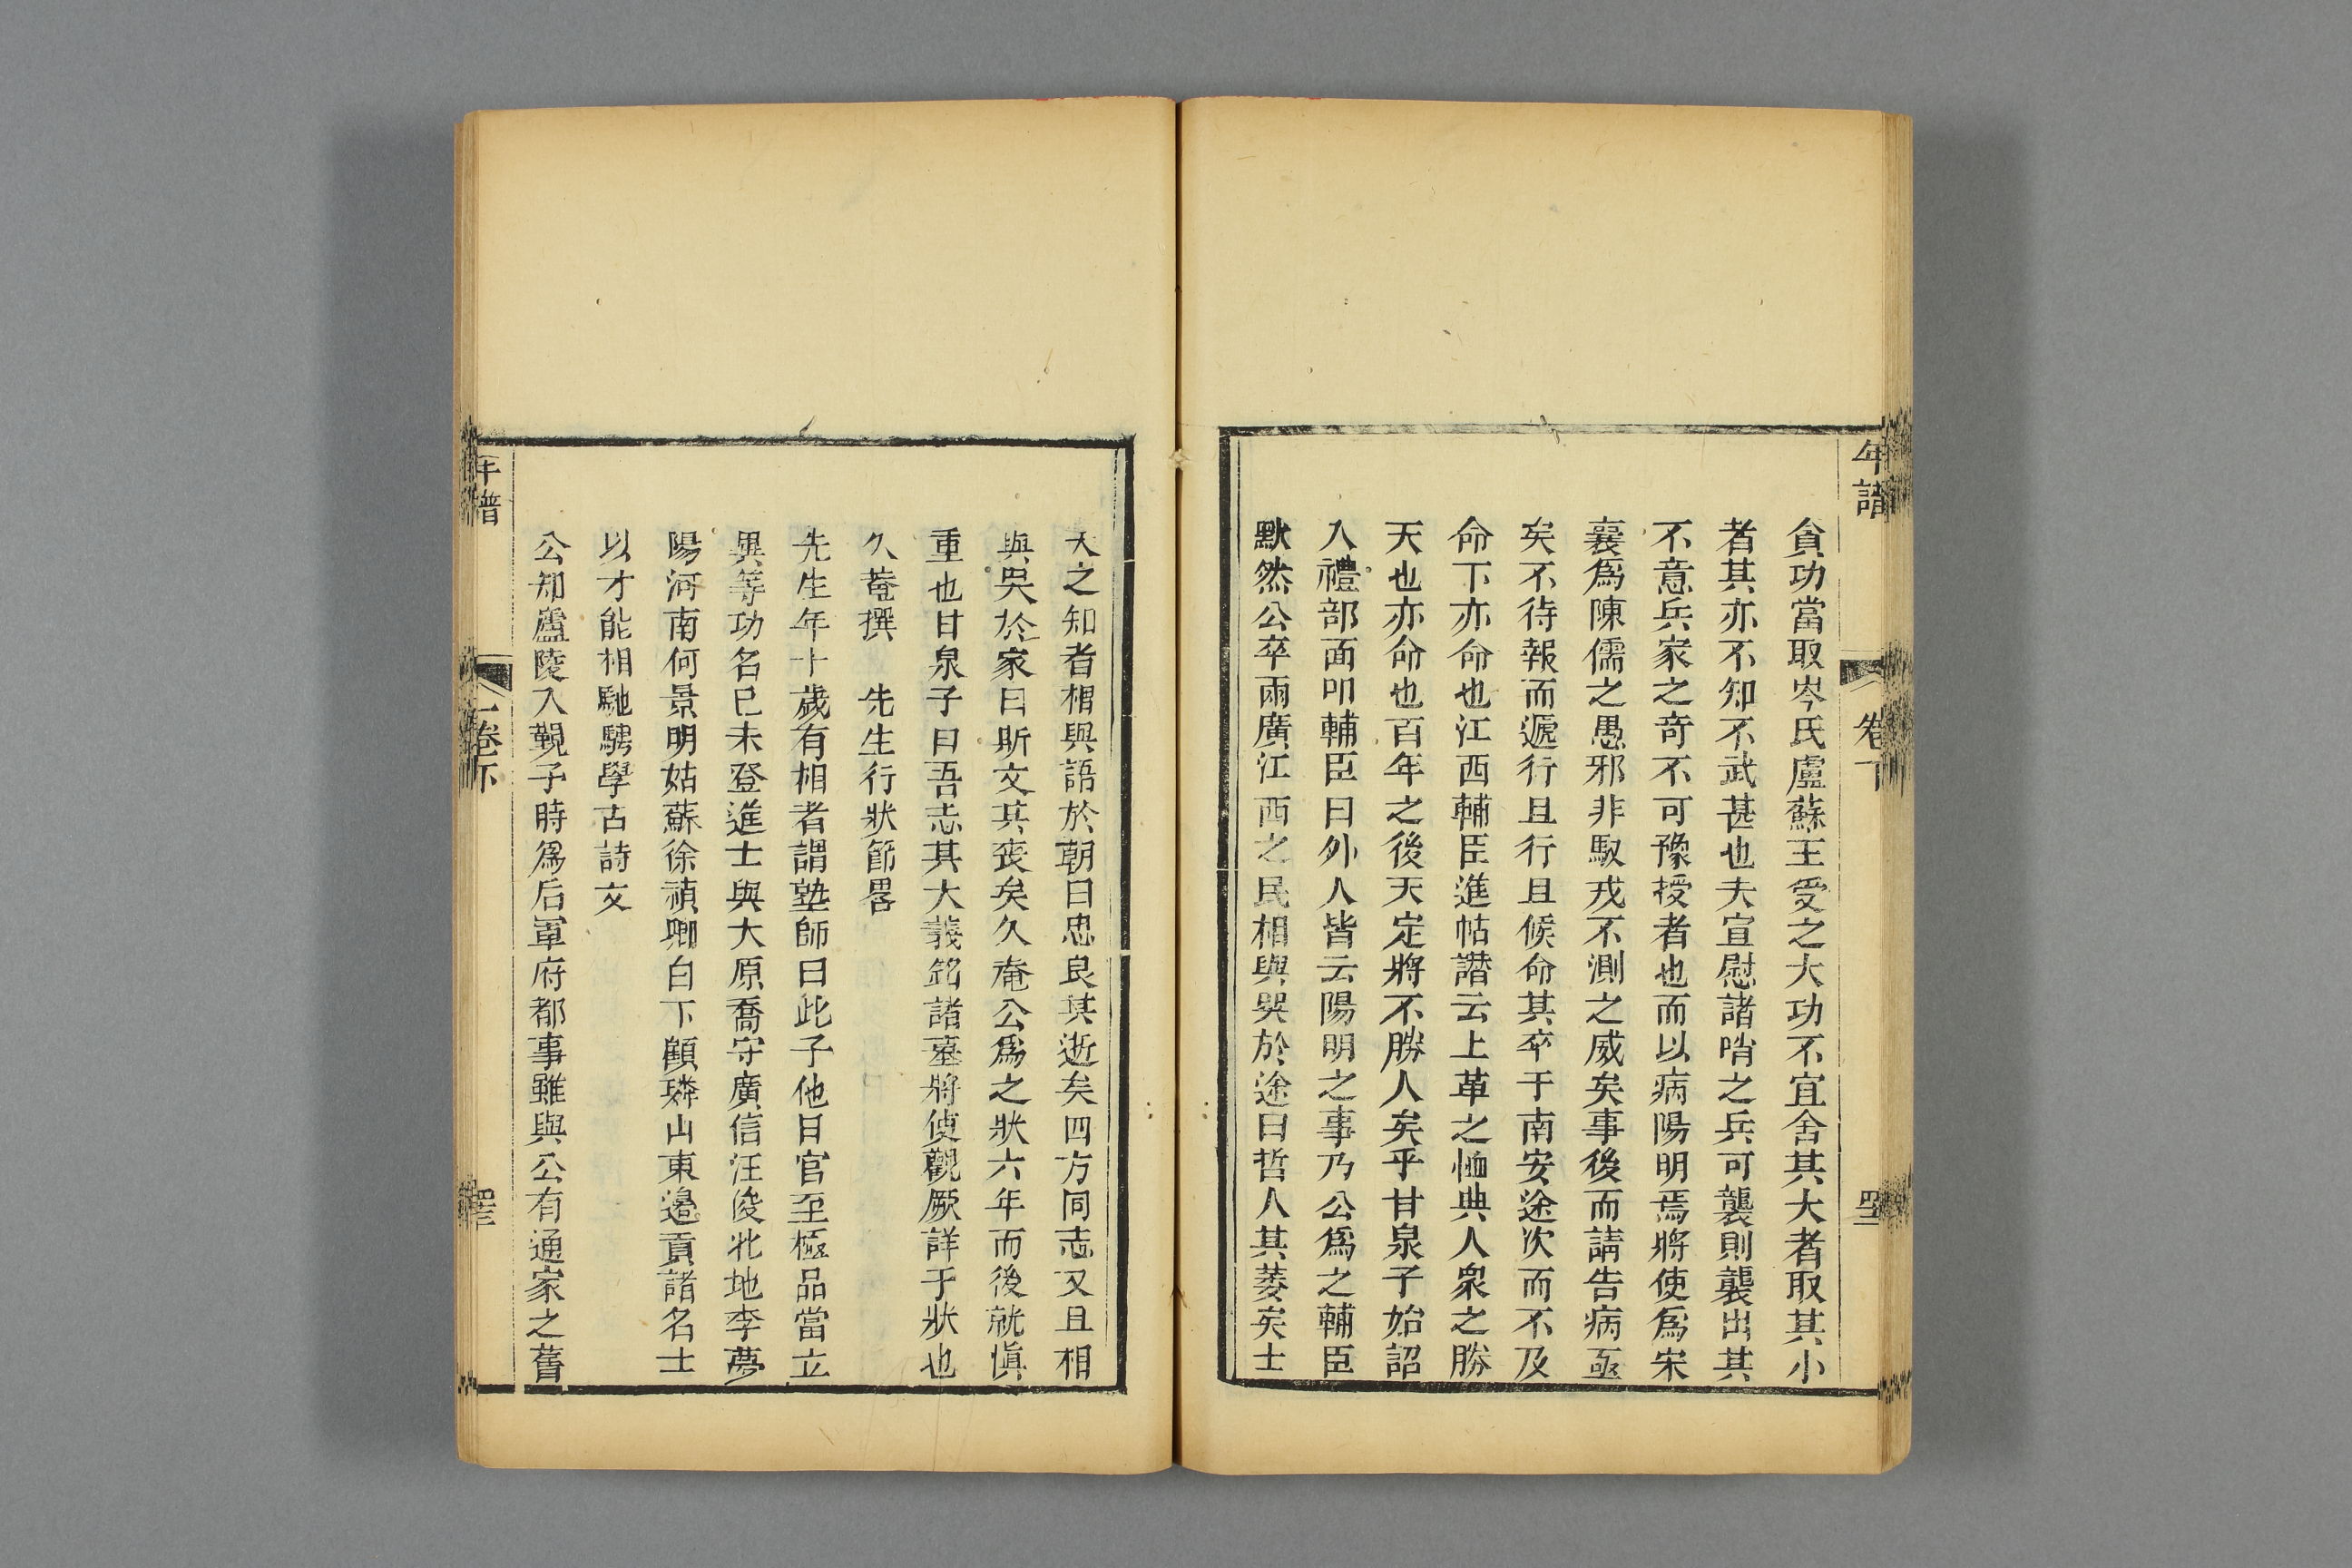 年譜 卷下 四十二
貪功當取岑氏盧蘇王受之大功不宜舍其大者取其小
者其亦不知不武甚也夫宣慰諸哨之兵可襲則襲出其
不意兵家之奇不可豫授者也而以病陽明焉將使爲宋
襄爲陳儒之愚邪非馭戎不測之威矣事後而請告病亟
矣不待報而遽行且行且候命其卒于南安途次而不及
命下亦命也江西輔臣進帖譖云上革之恤典人衆之勝
天也亦命也百年之後天定將不勝人矣乎甘泉子始詔
入禮部面叩輔臣曰外人皆云陽明之事乃公爲之輔臣
默然公卒兩廣江西之民相與哭於途曰哲人其萎矣士
夫之知者相與語於朝曰忠良其逝矣四方同志又且相
與吳於家曰斯文其喪矣久菴公爲之狀六年而後就愼
重也甘泉子曰吾志其大義銘諸墓將使觀厥詳于狀也
久菴撰 先生行狀節畧
先生年十歲有相者謂塾師曰此子他日官至極品當立
異等功名已未登進士與大原喬守廣信汪俊北地李夢
陽河南何景明姑蘇徐禎卿白下顧璘山東邉貢諸名士
以才能相馳騁學古詩文
公知盧陵入覲子時爲后軍府都事雖與公有通家之舊
年譜 卷下 四十三